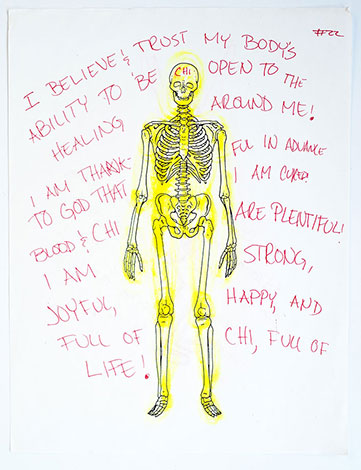 #22
I BELIEVE & TRUST MY BODY'S
ABILITY TO BE OPEN TO THE
CHI
HEALING AROUND ME!
I AM THANK- FUL IN ADVANCE
TO GOD THAT I AM CURED!
BLOOD & CHI ARE PLENTIFUL!
I AM STRONG,
JOYFUL, HAPPY, AND
FULL OF CHI, FULL OF
LIFE!